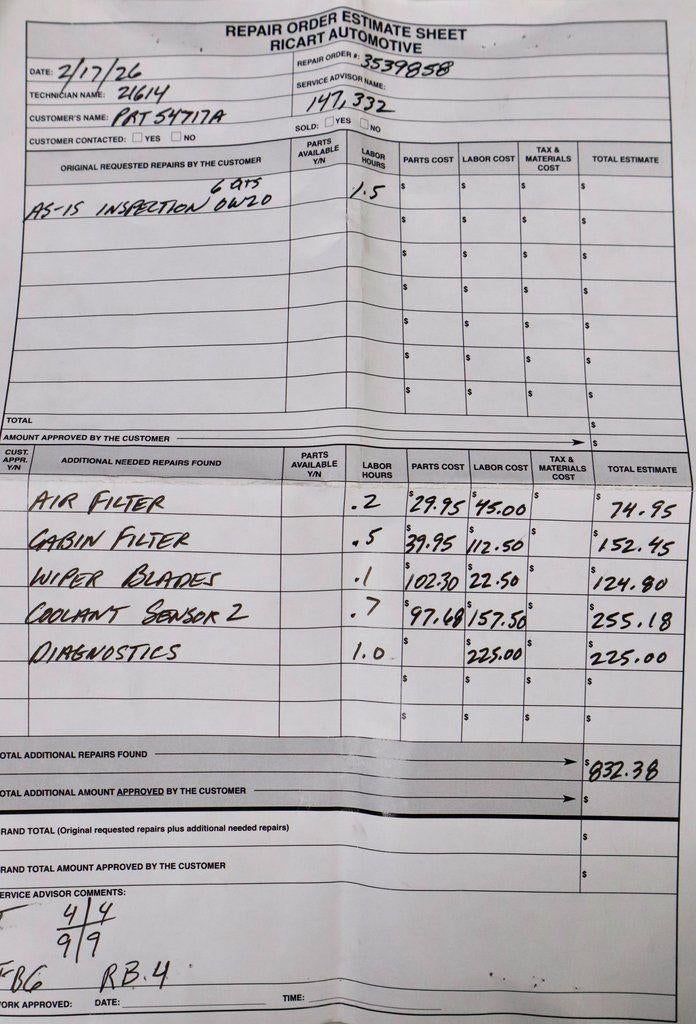 REPAIR ORDER ESTIMATE SHEET
RICART AUTOMOTIVE
DATE: 2/17/26
REPAIR ORDER #: 3539858
TECHNICIAN NAME: 21614
SERVICE ADVISOR NAME:
147,332
CUSTOMER'S NAME: PRT 54717A
CUSTOMER CONTACTED: YES NO
SOLD: YES NO
ORIGINAL REQUESTED REPAIRS BY THE CUSTOMER PARTS AVAILABLE Y/N LABOR HOURS PARTS COST LABOR COST TAX & MATERIALS COST TOTAL ESTIMATE
6 QTS
AS-IS INSPECTION 0W20 1.5 $ $ $ $
$ $ $ $
$ $ $ $
$ $ $ $
$ $ $ $
$ $ $ $
$ $ $ $
TOTAL $
AMOUNT APPROVED BY THE CUSTOMER $
CUST. APPR. Y/N ADDITIONAL NEEDED REPAIRS FOUND PARTS AVAILABLE Y/N LABOR HOURS PARTS COST LABOR COST TAX & MATERIALS COST TOTAL ESTIMATE
AIR FILTER .2 $29.95 $45.00 $ $74.95
CABIN FILTER .5 $39.95 $112.50 $ $152.45
WIPER BLADES .1 $102.30 $22.50 $ $124.80
COOLANT SENSOR 2 .7 $97.68 $157.50 $ $255.18
DIAGNOSTICS 1.0 $ $225.00 $ $225.00
$ $ $ $
$ $ $ $
OTAL ADDITIONAL REPAIRS FOUND $832.38
OTAL ADDITIONAL AMOUNT APPROVED BY THE CUSTOMER $
RAND TOTAL (Original requested repairs plus additional needed repairs) $
RAND TOTAL AMOUNT APPROVED BY THE CUSTOMER $
ERVICE ADVISOR COMMENTS:
4 4
9 9
RB.4
ORK APPROVED: DATE: TIME: